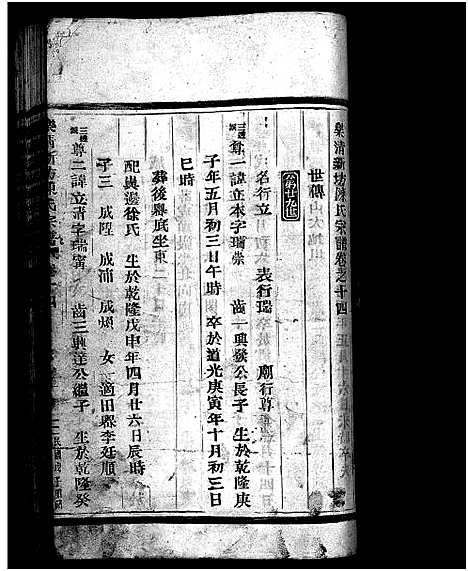 樂清新坊陳氏宗譜卷之十四
世傳
名行立 表行瑞 廟行尊
尊一諱立本字瑞崇 齒一興發公長子 生於乾隆庚
子年五月初三日午時 卒於道光庚寅年十月初三日
巳時
葬後嶴底坐東
配奧邊徐氏 生於乾隆戊申年四月廿六日辰時
子三 成陞 成浦 成炳 女一適田嶴李廷順
尊二諱立清字瑞寧 齒三興注公繼子 生於乾隆癸
樂清新坊陳氏宗譜